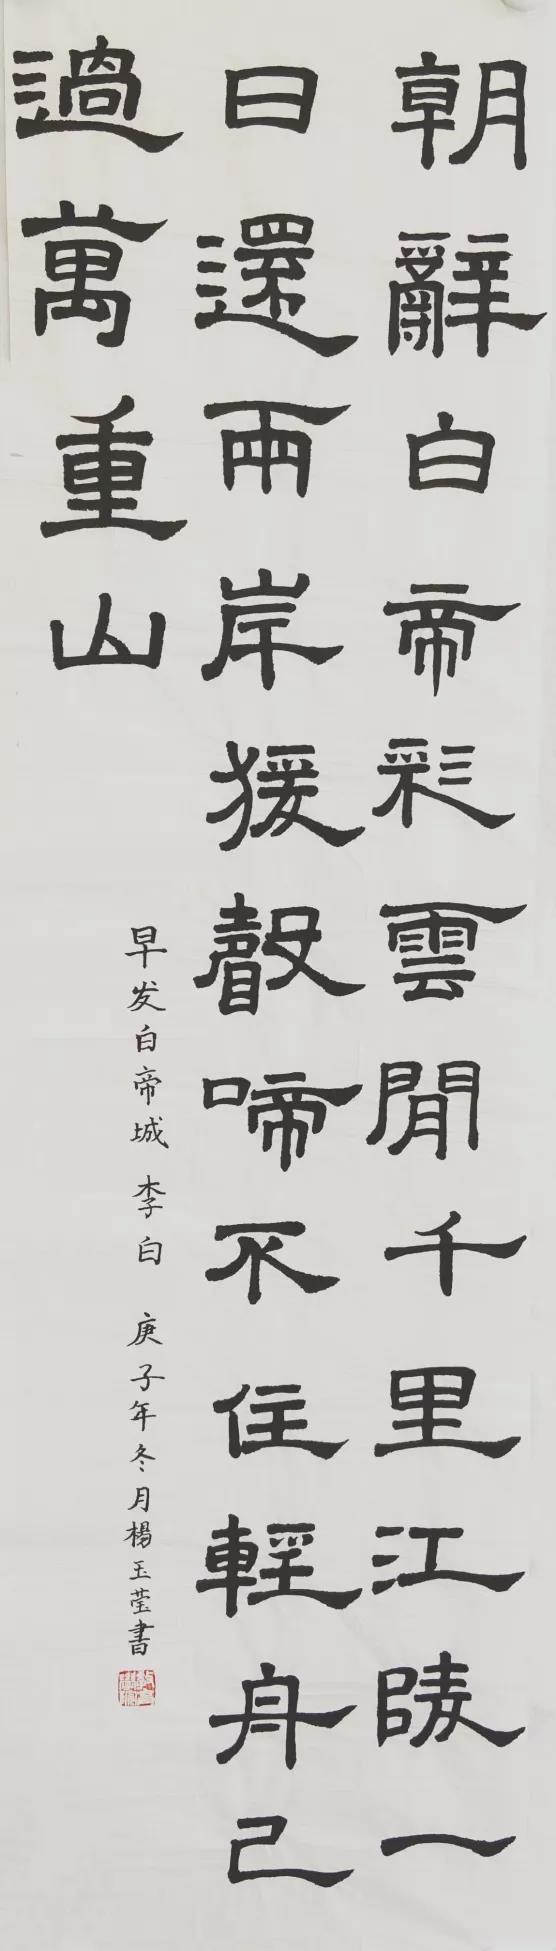 朝辭白帝彩雲間千里江陵一
日還兩岸猨聲啼不住輕舟已
過萬重山
早发白帝城 李白 庚子年冬月楊玉莹書